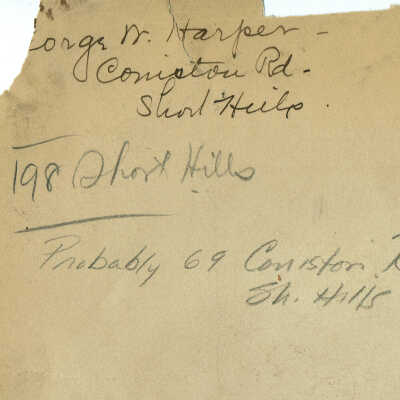 orge W. Harper -
Coniston Rd -
Short Hills.
198 Short Hills
Probably 69 Coniston R
Sh. Hills